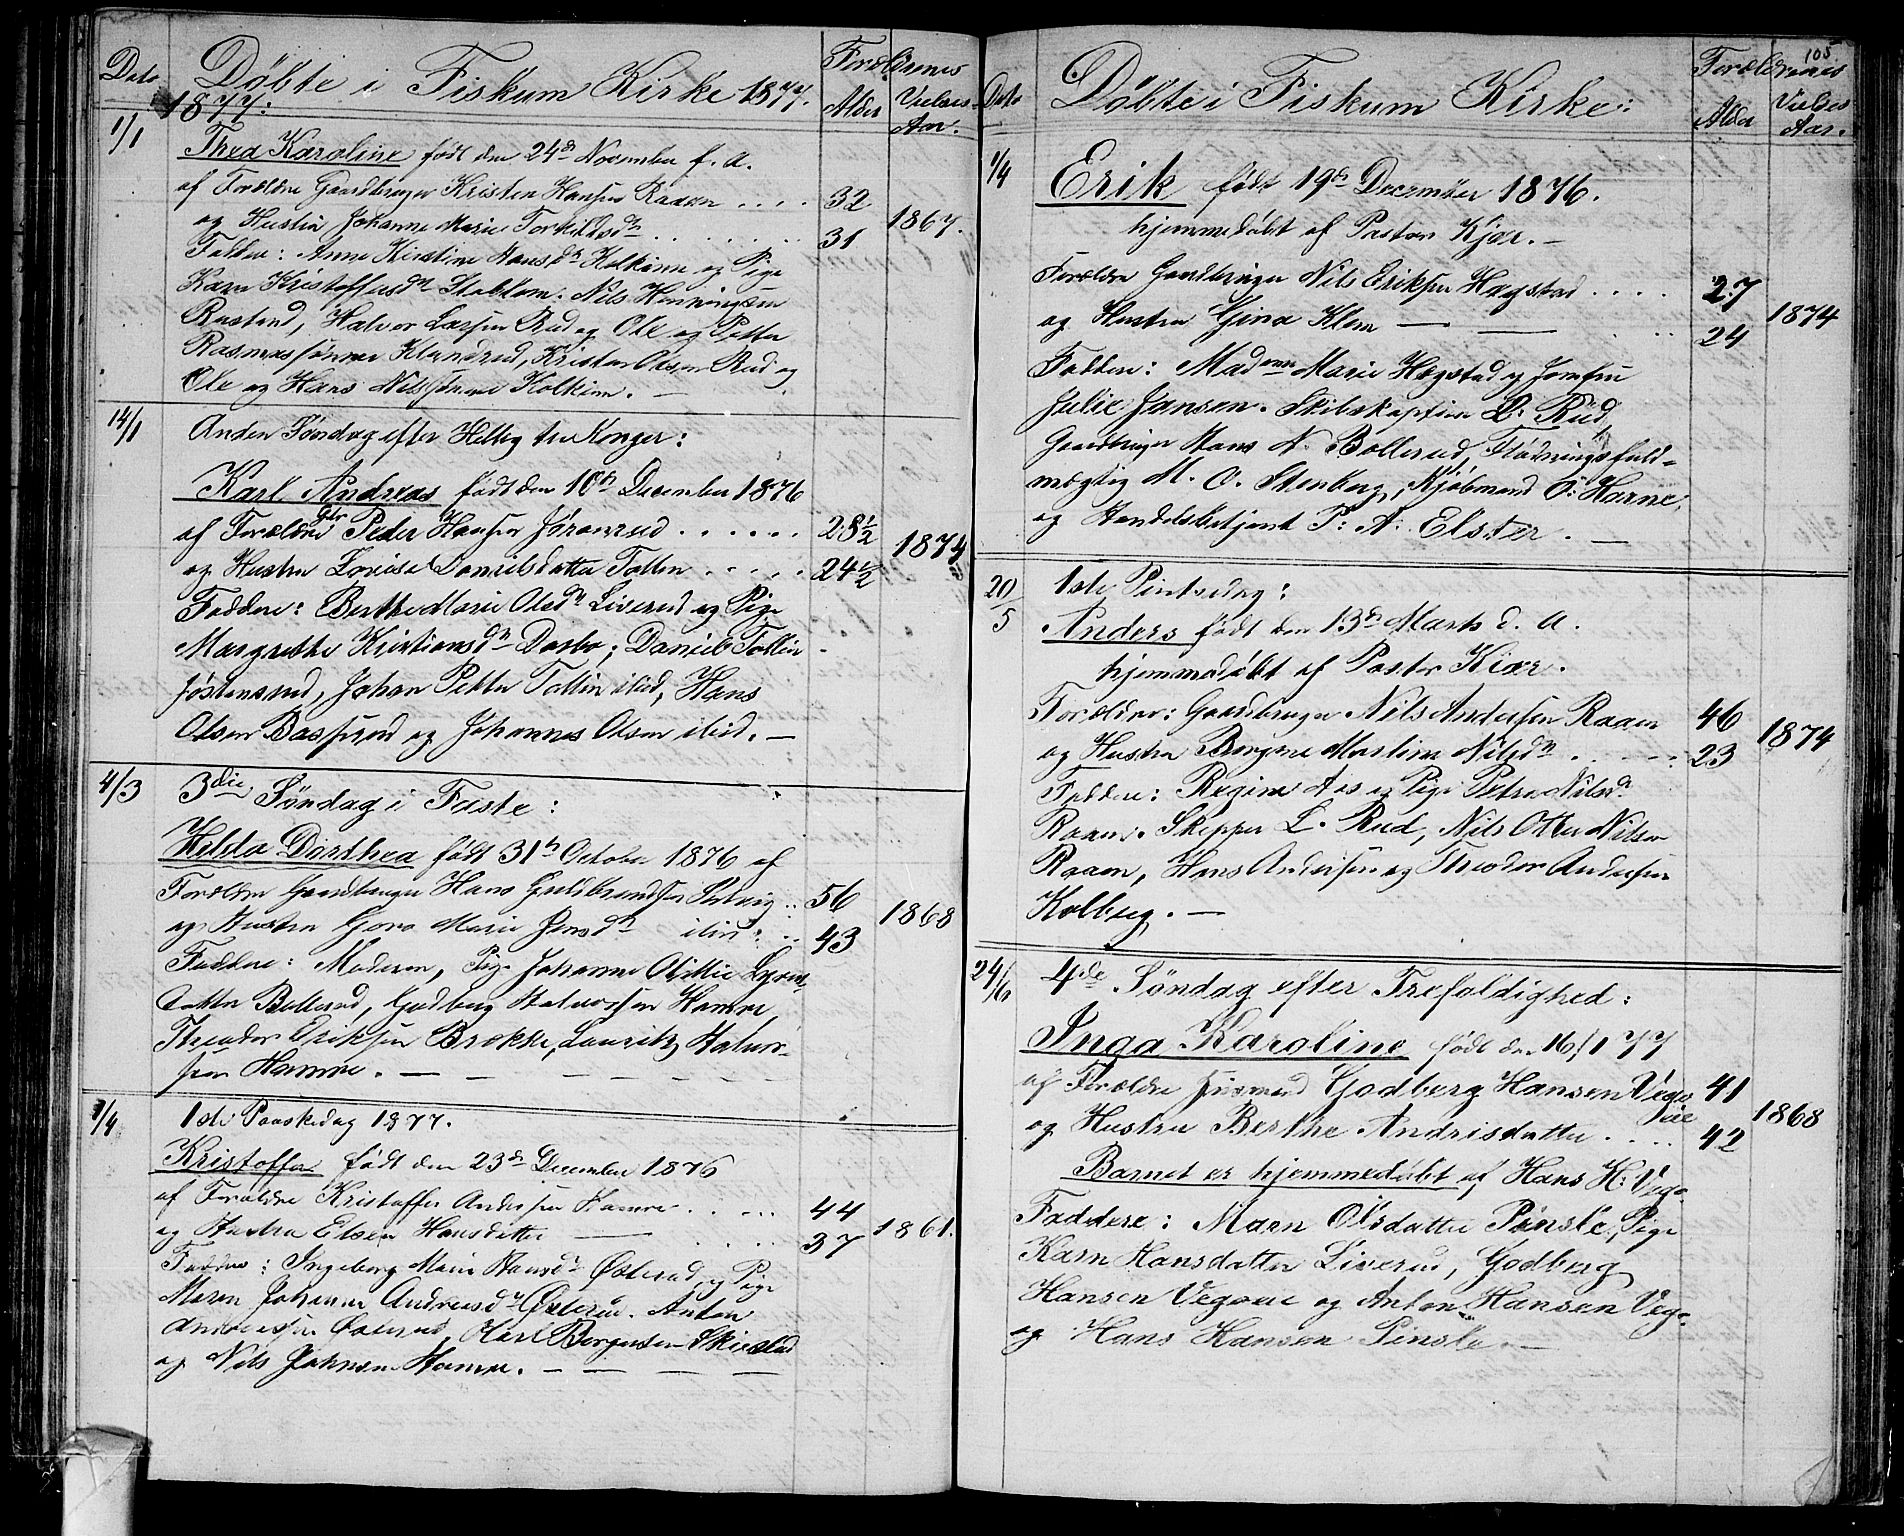 Dato
Døbte i Fiskum Kirke 1877.
Forældrenes
Alder
Vielses Aar.
1877:
1/1
Thea Karoline født den 24de November f. A.
af Forældre Gaardbruger Kristen Hansen Raaen . . . . 32
og Hustru Johanne Marie Torkildsdtr . . . . 31 1867.
Faddere: Anne Kirstine Hansdtr Kolkinn og Pige
Karn Kristoffersdtr Stablom. Nils Henningsen
Rustand, Halvor Larsen Rud og Ole og Petter
Rasmussønner Klundrud, Kristen Olsen Rud og
Ole og Hans Nilssønner Kolkinn. —
14/1
Anden Søndag efter Hellig tre Konger:
Karl Andreas født den 10de December 1876
af Forældre Gbr Peder Hansen Jøranrud . . . . . . 28½
og Hustru Lovise Danielsdatter Tollin . . . . . 24½ 1874
Faddere: Berthe Marie Olsdtr Liverud og Pige
Margrethe Kristiansdtr Dasbo; Daniel Tollin
Jøstensrud, Johan Petter Tollin ibid, Hans
Olsen Basserud og Johannes Olsen ibid. —
4/3
3die Søndag i Faste:
Hilda Dorthea født 31te October 1876 af
Forældre Gaardbruger Hans Guldbrandsen 56
og Hustru Goro Marie Jensdtr ibid: . . 43 1868
Faddere: Moderen, Pige Johanne Otillie
datter Bollerud, Godberg Halvorsen Hamre,
Theodor Eriksen Brekke, Lauritz Halvor-
sen Hamre. — — — — — —
1/4
1ste Paaskedag 1877.
Kristoffer født den 23de December 1876
af Forældre Kristoffer Andersen Hamre . . . . . 44
og Hustru Elsen Hansdatter — . . . . 37 1861.
Faddere: Ingeborg Marie Hansdtr Østerud og Pige
Maren Johanne Andreasdtr Østerud. Anton
Andreassen Østerud, Karl Borgersen
og Nils Johnsen Hamre. — — — —
105
Dato
Døbte i Fiskum Kirke:
Forældrenes
Alder
Vielses Aar.
1/4
Erik født 19de December 1876.
hjemmedøbt af Pastor Kjær. —
Forældre Gaardbruger Nils Eriksen Hægstad . . . . 27
og Hustru Gina Klem — — . . 24 1874
Faddere: Madame Marie Hægstad og Jomfru
Julie Jansen. Skibskaptein L. Rud,
Gaardbruger Hans N. Bollerud, Flødningsfuld-
mægtig M. O. Stenberg, Kjøbmand O. Hamre,
og Handelsbetjent P. A. Elster. —
20/5
1ste Pintsedag:
Anders født den 13de Marts d. A.
hjemmedøbt af Pastor Kiær.
Forældre: Gaardbruger Nils Andersen Raaen 46
og Hustru Borgine Martine Nilsdtr . . . . 23 1874
Faddere: Regine Aas og Pige Petra Nilsdtr
Raaen. Skipper L. Rud, Nils Otter Nilsen
Raaen, Hans Andersen og Theodor Andersen
Kolberg. —
24/6
4de Søndag efter Trefoldighed:
Inga Karoline født den 16/1 77
af Forældre Husmand Godberg Hansen Vego 41
eie
og Hustru Berthe Andrisdatter . . . . 42 1868
Barnet er hjemmedøbt af Hans H. Vego.
Faddere: Maren Olsdatter Pinsle, Pige
Karn Hansdatter Liverud, Godberg
Hansen Vegoeie og Anton Hansen Vego.
og Hans Hansen Pinsle. —